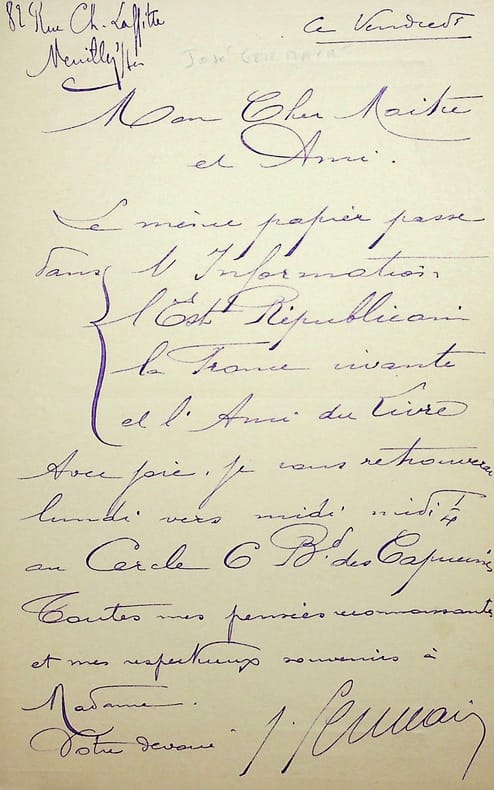 82 Rue Ch. Laffitte
Neuilly s/Seine
ce Vendredi
JOSÉ GERMAIN
Mon Cher Maitre
et Ami.
Le même papier passe
dans l'Information
l'Est Républicain
la France vivante
et l'Ami du Livre
Avec joie, je vous retrouverai
lundi vers midi midi 1/4
au Cercle 6 Bd des Capucines
Toutes mes pensées reconnaissantes
et mes respectueux souvenirs à
Madame.
Votre dévoué
J. Germain